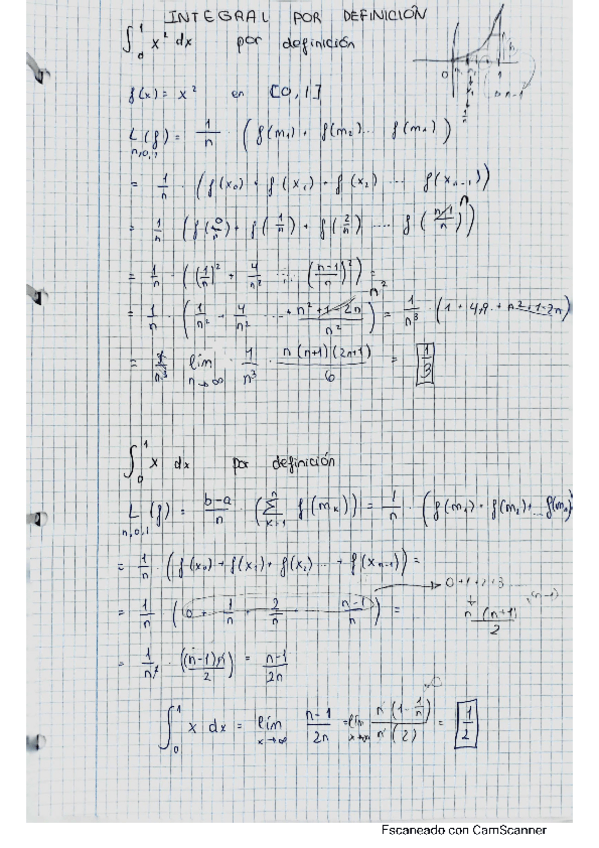 INTEGRAL POR DEFINICIÓN
∫₀¹ x² dx por definición
f(x) = x² en [0,1]
L_{n,0,1}(f) = 1/n · (f(m₁) + f(m₂) ... f(mₙ))
= 1/n · (f(x₀) + f(x₁) + f(x₂) ... f(xₙ₋₁))
= 1/n (f(0/n) + f(1/n) + f(2/n) .... f((n-1)/n))
= 1/n · ((1/n)² + 4/n² ... ((n-1)/n)²) =
= 1/n · (1/n² + 4/n² ... + (n²+1-2n)/n²) = 1/n³ · (1 + 4+9 + n²+1-2n)
= 1/n³ lím n→∞ 1/n³ · n(n+1)(2n+1)/6 = 1/3
∫₀¹ x dx por definición
L_{n,0,1}(f) = (b-a)/n · (∑_{k=1}^{n} f(mₖ)) = 1/n · (f(m₁) + f(m₂) + ... f(mₙ)
= 1/n · (f(x₀) + f(x₁) + f(x₂) ... + f(xₙ₋₁)) =
= 1/n (0 + 1/n + 2/n (n-1)/n) = 0+1+2+3... (n-1)
n(n+1)/2
= 1/n · ((n-1)n/2) = (n-1)/2n
∫₀¹ x dx = lím x→∞ (n-1)/2n = lím x→∞ n(1 - 1/n)/n(2) = 1/2
Escaneado con CamScanner